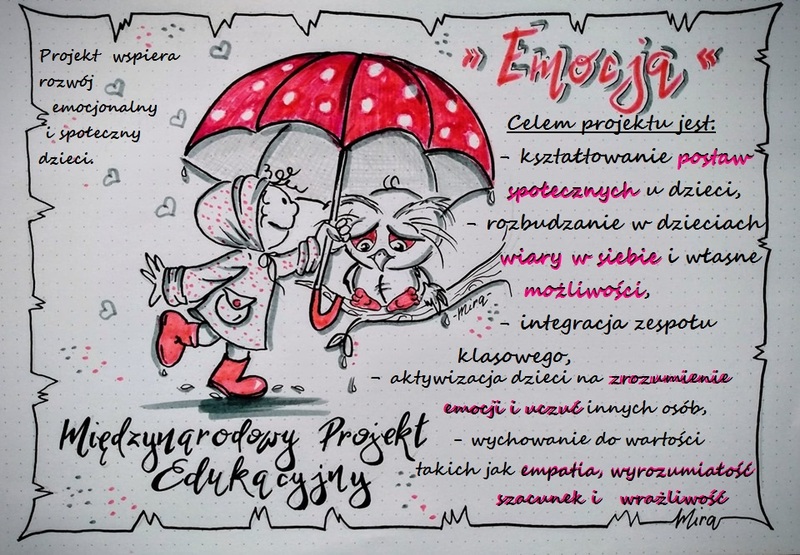 Projekt wspiera
rozwój
emocjonalny
i społeczny
dzieci.
» Emocją «
Celem projektu jest:
- kształtłowanie postaw
społecznych u dzieci,
- rozbudzanie w dzieciach
wiary w siebie i własne
możliwości,
- integracja zespołu
klasowego,
- aktywizacja dzieci na zrozumienie
emocji i uczuć innych osób,
- wychowanie do wartości
takich jak empatia, wyrozumiałość
szacunek i wrażliwość
-Mira
Międzynarodowy Projekt
Edukacyjny
Mira